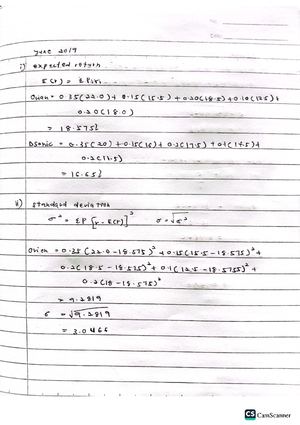 No:
Date:
June 2019
i) expected return
E(r) = ΣPiri
Orian = 0.35(22.0) + 0.15(15.5) + 0.20(18.5) + 0.10(12.5) +
0.20(18.0)
= 18.575%
Dsonic = 0.35(20) + 0.15(16) + 0.2(17.5) +
= 16.65%
ii) standard deviation
σ² = ΣP [r - E(r)]² σ = √σ²
Orien = 0.35 (22.0 - 18.575)² + 0.15(15.5 - 18.575)² +
0.2(18.5 - 18.575)² + 0.1(12.5 - 18.575)² +
0.2(18 - 18.575)²
= 9.2819
σ = √9.2819
= 3.0466
CS CamScanner